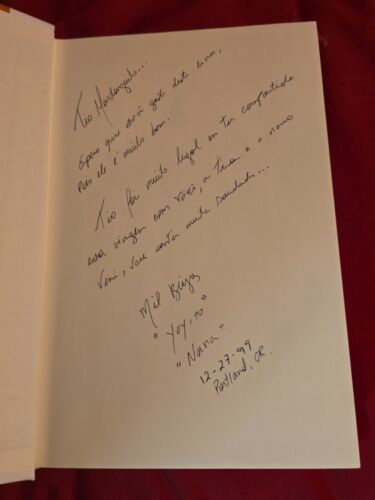 Tio
Espero que você goste deste livro,
Pois ele é muito bom.
Tio foi muito legal em ter compartido
essa viagem com você, a Tina e o nono
Veni, vou sentir muita saudade...
Mil Beijos
"Yoyito"
"Nana"
12-27-99
Portland, OR.